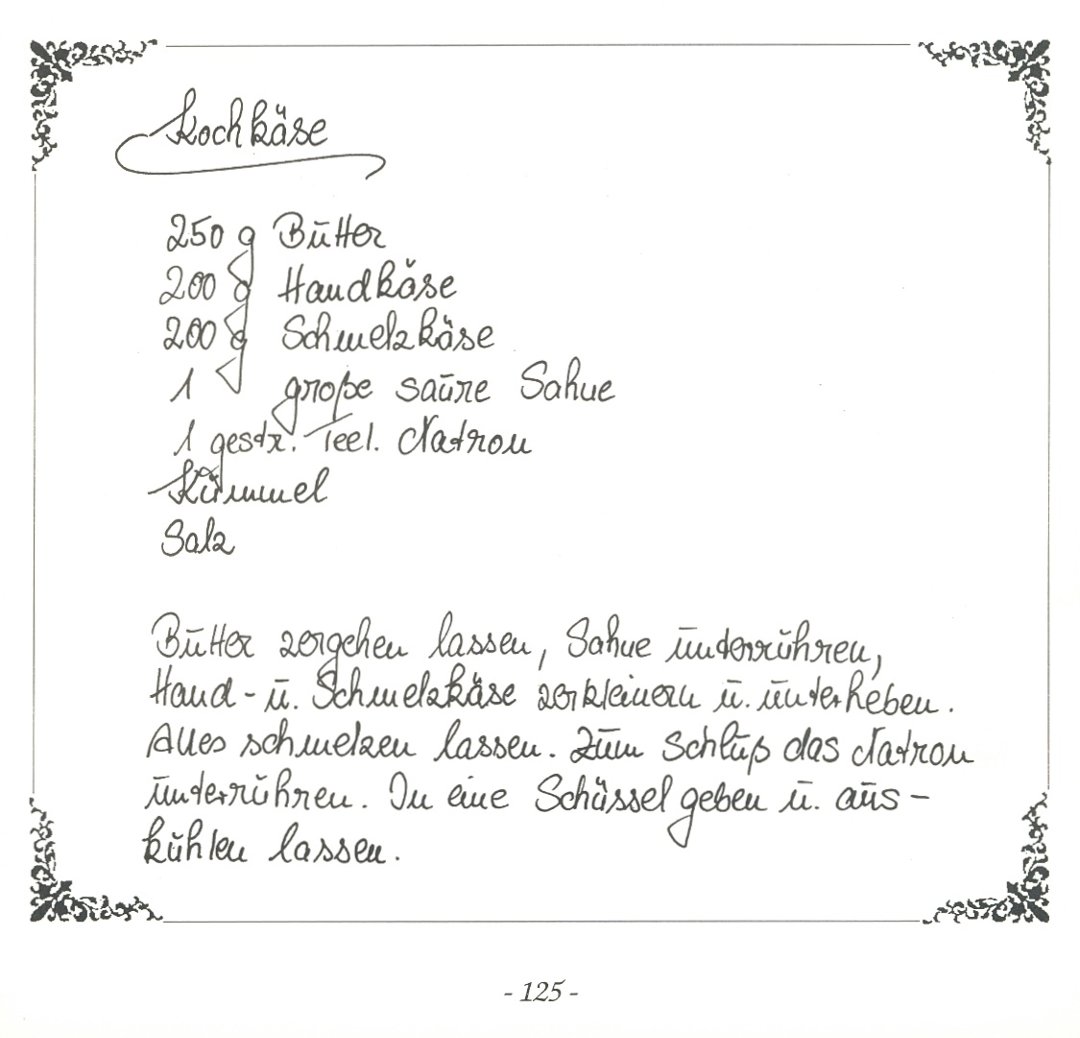 Kochkäse
250 g Butter
200 g Handkäse
200 g Schmelzkäse
1 große saure Sahne
1 gestr. Teel. Natron
Kümmel
Salz
Butter zergehen lassen, Sahne unterrühren,
Hand- u. Schmelzkäse zerkleinern u. unterheben.
Alles schmelzen lassen. Zum Schluß das Natron
unterrühren. In eine Schüssel geben u. aus-
kühlen lassen.
- 125 -